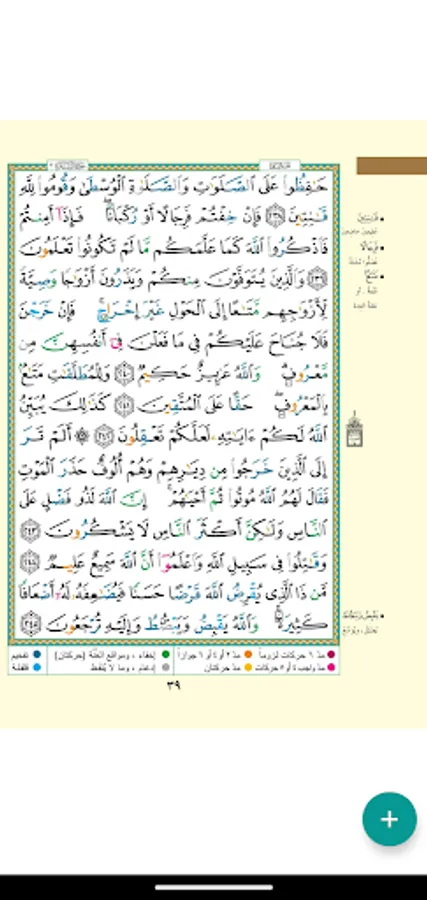 حَٰفِظُوا۟ عَلَى ٱلصَّلَوَٰتِ وَٱلصَّلَوٰةِ ٱلْوُسْطَىٰ وَقُومُوا۟ لِلَّهِ
قَٰنِتِينَ ٢٣٨ فَإِنْ خِفْتُمْ فَرِجَالًا أَوْ رُكْبَانًا ۖ فَإِذَآ أَمِنتُمْ
فَٱذْكُرُوا۟ ٱللَّهَ كَمَا عَلَّمَكُم مَّا لَمْ تَكُونُوا۟ تَعْلَمُونَ
٢٣٩ وَٱلَّذِينَ يُتَوَفَّوْنَ مِنكُمْ وَيَذَرُونَ أَزْوَٰجًا وَصِيَّةً
لِّأَزْوَٰجِهِم مَّتَٰعًا إِلَى ٱلْحَوْلِ غَيْرَ إِخْرَاجٍ ۚ فَإِنْ خَرَجْنَ
فَلَا جُنَاحَ عَلَيْكُمْ فِى مَا فَعَلْنَ فِىٓ أَنفُسِهِنَّ مِن
مَّعْرُوفٍ ۗ وَٱللَّهُ عَزِيزٌ حَكِيمٌ ٢٤٠ وَلِلْمُطَلَّقَٰتِ مَتَٰعٌۢ
بِٱلْمَعْرُوفِ ۖ حَقًّا عَلَى ٱلْمُتَّقِينَ ٢٤١ كَذَٰلِكَ يُبَيِّنُ
ٱللَّهُ لَكُمْ ءَايَٰتِهِۦ لَعَلَّكُمْ تَعْقِلُونَ ٢٤٢ ۞ أَلَمْ تَرَ
إِلَى ٱلَّذِينَ خَرَجُوا۟ مِن دِيَٰرِهِمْ وَهُمْ أُلُوفٌ حَذَرَ ٱلْمَوْتِ
فَقَالَ لَهُمُ ٱللَّهُ مُوتُوا۟ ثُمَّ أَحْيَٰهُمْ ۚ إِنَّ ٱللَّهَ لَذُو فَضْلٍ عَلَى
ٱلنَّاسِ وَلَٰكِنَّ أَكْثَرَ ٱلنَّاسِ لَا يَشْكُرُونَ ٢٤٣
وَقَٰتِلُوا۟ فِى سَبِيلِ ٱللَّهِ وَٱعْلَمُوٓا۟ أَنَّ ٱللَّهَ سَمِيعٌ عَلِيمٌ ٢٤٤
مَّن ذَا ٱلَّذِى يُقْرِضُ ٱللَّهَ قَرْضًا حَسَنًا فَيُضَٰعِفَهُۥ لَهُۥٓ أَضْعَافًا
كَثِيرَةً ۚ وَٱللَّهُ يَقْبِضُ وَيَبْصُۜطُ وَإِلَيْهِ تُرْجَعُونَ ٢٤٥
مدّ ٦ حركات لزوماً مدّ ٢ أو ٤ أو ٦ جوازاً إخفاء، ومواقع الغُنَّة (حركتان) تفخيم
مدّ واجب ٤ أو ٥ حركات مدّ حركتان إدغام، وما لا يُلفَظ قلقلة
٣٩